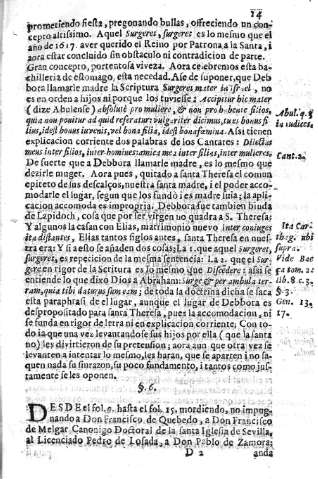 14
prometiendo fiesta, pregonando bullas, ofreciendo un con-
cepto altissimo. Aquel Surgeres, surgeres es lo mesmo que el
año de 1617. aver querido el Reino por Patrona a la Santa, i
aora estar concluido sin obstaculo ni contradicion de parte.
Gran concepto, portentosa viveza. Aora celebremos esta ba-
chilleria de estomago, esta necedad. Ase de suponer, que Deb
bora llamarle madre la Scriptura Surgeres mater in Israel, no
es en orden a hijos ni porque los tuviesse: Accipitur hic mater
( dize Abulense ) absolutè pro muliere, & non prob. bente filios,
quia non ponitur ad quid referatur: vulgariter dicimus, tu es bonus fi
lius, idest bonus iuvenis, vel bona filia, idest bona fœmina. Assi tienen
explicacion corriente dos palabras de los Cantares: Dilectus
meus inter filios, inter homines: amica mea inter filias, inter mulieres.
De suerte que a Debbora llamarle madre, es lo mesmo que
dezirle muger. Aora pues, quitado a santa Theresa el comun
epiteto de sus descalços, nuestra santa madre, i el poder aco-
modarle el lugar, segun que los fundò i es madre suia; la apli-
cacion acomoda es impropria. Debbora fue tambien biuda
de Lapidoch, cosa que por ser virgen no quadra a S. Theresa:
Y algunos la casan con Elias, matrimonio nuevo inter coniuges
ita distantes, Elias tantos siglos antes, santa Theresa en nues
tra era: Y si a esto se añaden dos cosas; la 1. que aquel Surgeres,
surgeres, es repeticion de la mesma sentencia: La 2. que el Sur-
gere en rigor de la Scritura es lo mesmo que Discedere: assi se
entiende lo que dixo Dios a Abraham: surge & per ambula ter-
ram, quia tibi daturus sum eam; de toda la doctrina dicha se saca
esta paraphrasi de el lugar, aunque el lugar de Debbora es
despropositado para santa Theresa, pues la accomodacion, ni
se funda en rigor de letra ni en explicacion corriente, Con to-
do ia que una vez levantandose sus hijos por ella ( que la santa
no) les divirtieron de su pretension; aora aun que otra vez se
levanten a intentar lo mesmo, les haran, que se aparten i no sa-
quen nada su furazon, su poco fundamento, i tantos como jus-
tamente se les oponen.
Abul. q. 8
in iudices.
Cant. 2.
Ita Car-
theg. ubi
supr.
Vide Bae
ça tom. 2.
lib. 8. c. 3.
§. 3.
Gen. 13,
17.
§. 6.
DESDE el fol. 9. hasta el fol. 15. mordiendo, no impug-
nando a Don Francisco de Quebedo, a Don Francisco
de Melgar Canonigo Doctoral de la santa Iglesia de Sevilla,
al Licenciado Pedro de Losada, a Don Pablo de Zamora:
D 2
anda